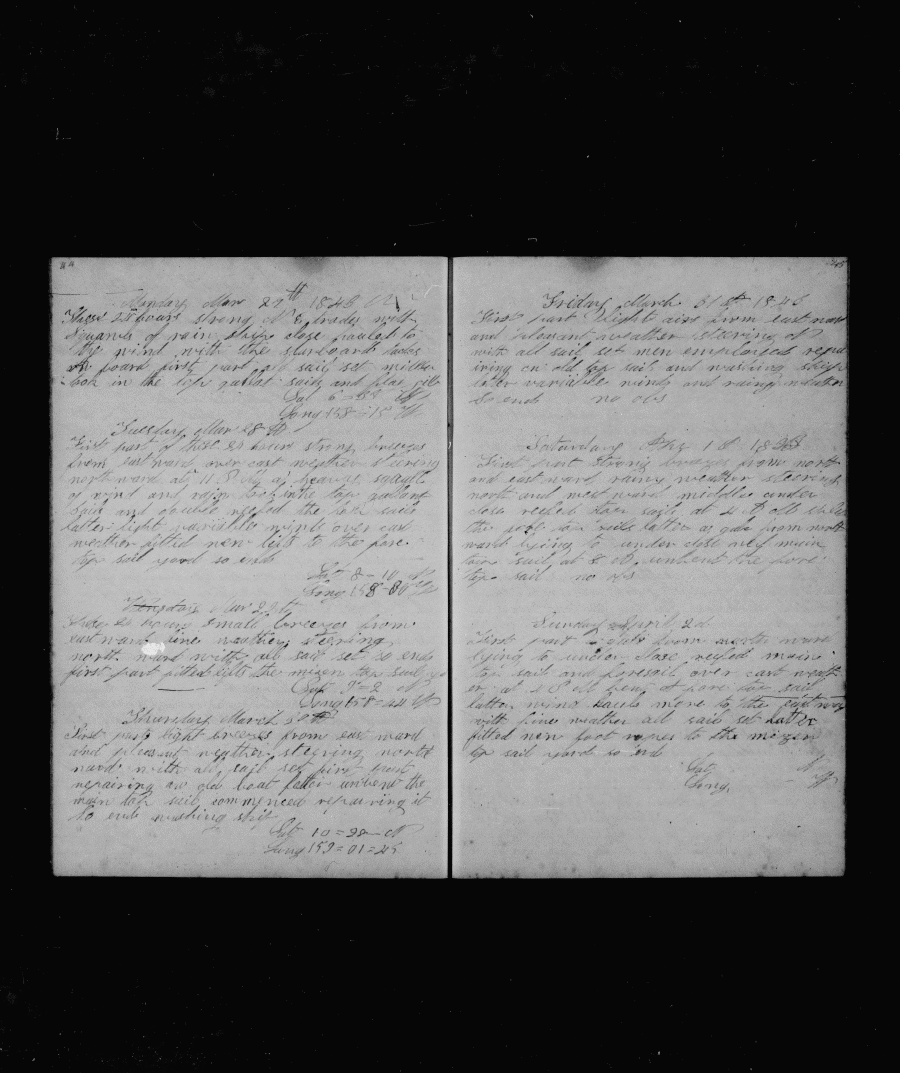 Monday Mar 27th 1848
These 24 hours strong N E trades with
squalls of rain Ship close hauled to
the wind with the starboard tacks
on board first part all sail set middle
took in the top gallant sails and
Lat 6 =
Long 158 = 15 W
Tuesday Mar 28th
First part of these 24 hours strong breezes
from eastward over cast weather steering
northward at 11 P M a heavy squall
of wind and rain took in the top gallant
sails and double reefed the top sails
latter light variable winds over cast
weather fitted new lifts to the fore
top sail yard so ends
Lat 8 = 10 N
Long 158 = 30 W
Mar 29th
These 24 hours small breezes from
eastward fine weather steering
north ward with all sail set so ends
first part fitted lifts the mizen top sail
Lat 9 = 2 N
Long 158 = 44 W
Thursday March 30th
First part light breezes from east ward
and pleasant weather steering north
ward with all sail set first part
repairing an old boat latter unbent the
main top sail commenced repairing it
So ends washing ship
Lat 10 = 28 N
Long 159 = 01 = 45
Friday March 31st 1848
First part light airs from east nor
and pleasant weather steering N
with all sail set men employed repa
iring an old top sail and washing ship
later variable winds and rainy weather
So ends no obs
Saturday 1st 1848
First part strong breezes from north
and eastward rainy weather steering
north and west ward middle under
close reefed top sails at 4 P M
the top sails latter a gale from north
ward lying to under close reef main
top sail at 8 unbent the fore
top sail no obs
Sunday April 2d
First part from north ward
lying to under close reefed main
top sail and foresail over cast weath
er at 4 P M bent a fore top sail
latter wind hauls more to the eastward
with fine weather all sail set latter
fitted new foot ropes to the mizen
top sail yard so ends
Lat N
Long W